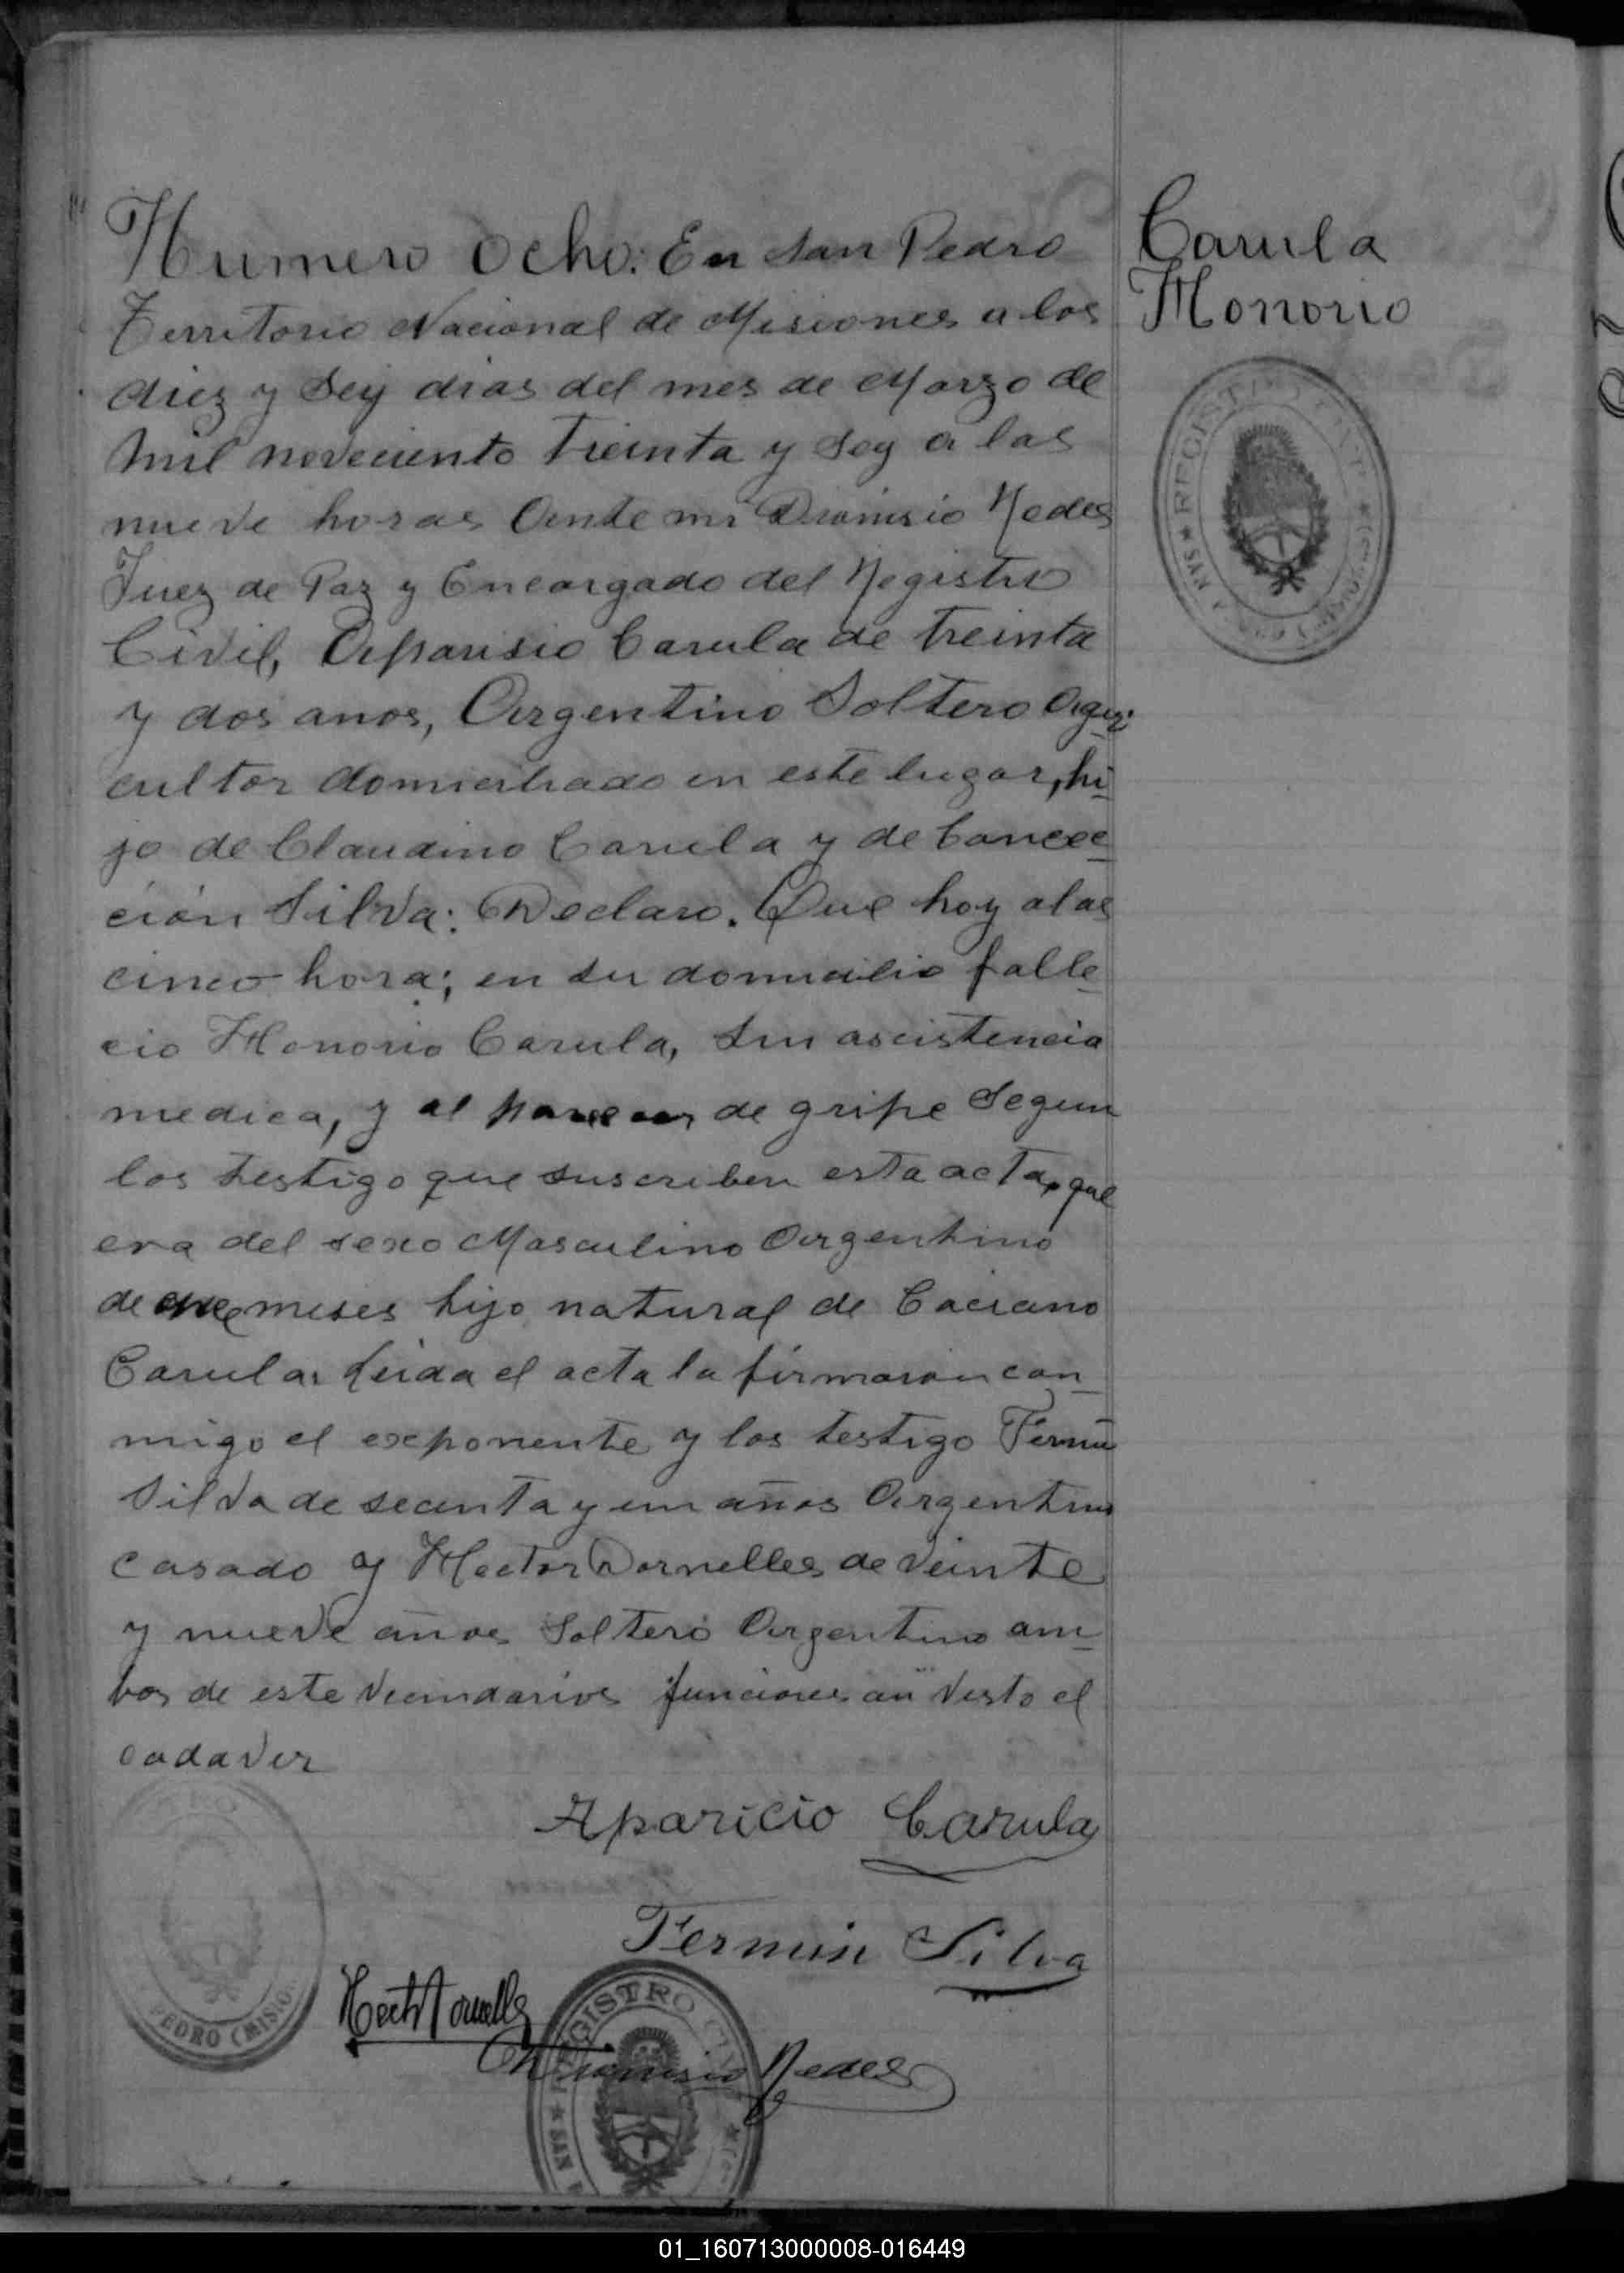 Numero Ocho: En San Pedro
Territorio Nacional de Misiones a los
diez y sey dias del mes de Marzo de
mil noveciento treinta y sey a las
nueve horas Ante mi Dionisio Redes
Juez de Paz y Encargado del Registro
Civil, Aparisio Carula de treinta
y dos anos, Argentino Soltero Agri
cultor domiciliado en este lugar, hi
jo de Claudino Carula y de Concec
ción Silva: Declaro. Que hoy a las
cinco hora; en su domicilio falle
cio Honorio Carula, sin ascistencia
medica, y al parecer de gripe segun
los testigo que suscriben esta acta, que
era del sexo Masculino Argentino
de meses hijo natural de Caciano
Carula. Leida el acta la firmaron con
migo el exponente y los testigo Fermin
Silva de secenta y un años Argentino
casado y Hector Dornelles de veinte
y nueve años Soltero Argentino am
bos de este vecindarios funciones an visto el
cadaver
Aparicio Carula
Fermin Silva
Hector Dornelles
Dionisio Redes
Carula
Honorio
REGISTRO CIVIL
SAN
PEDRO (MISIO
REGISTRO
SAN P
01_160713000008-016449